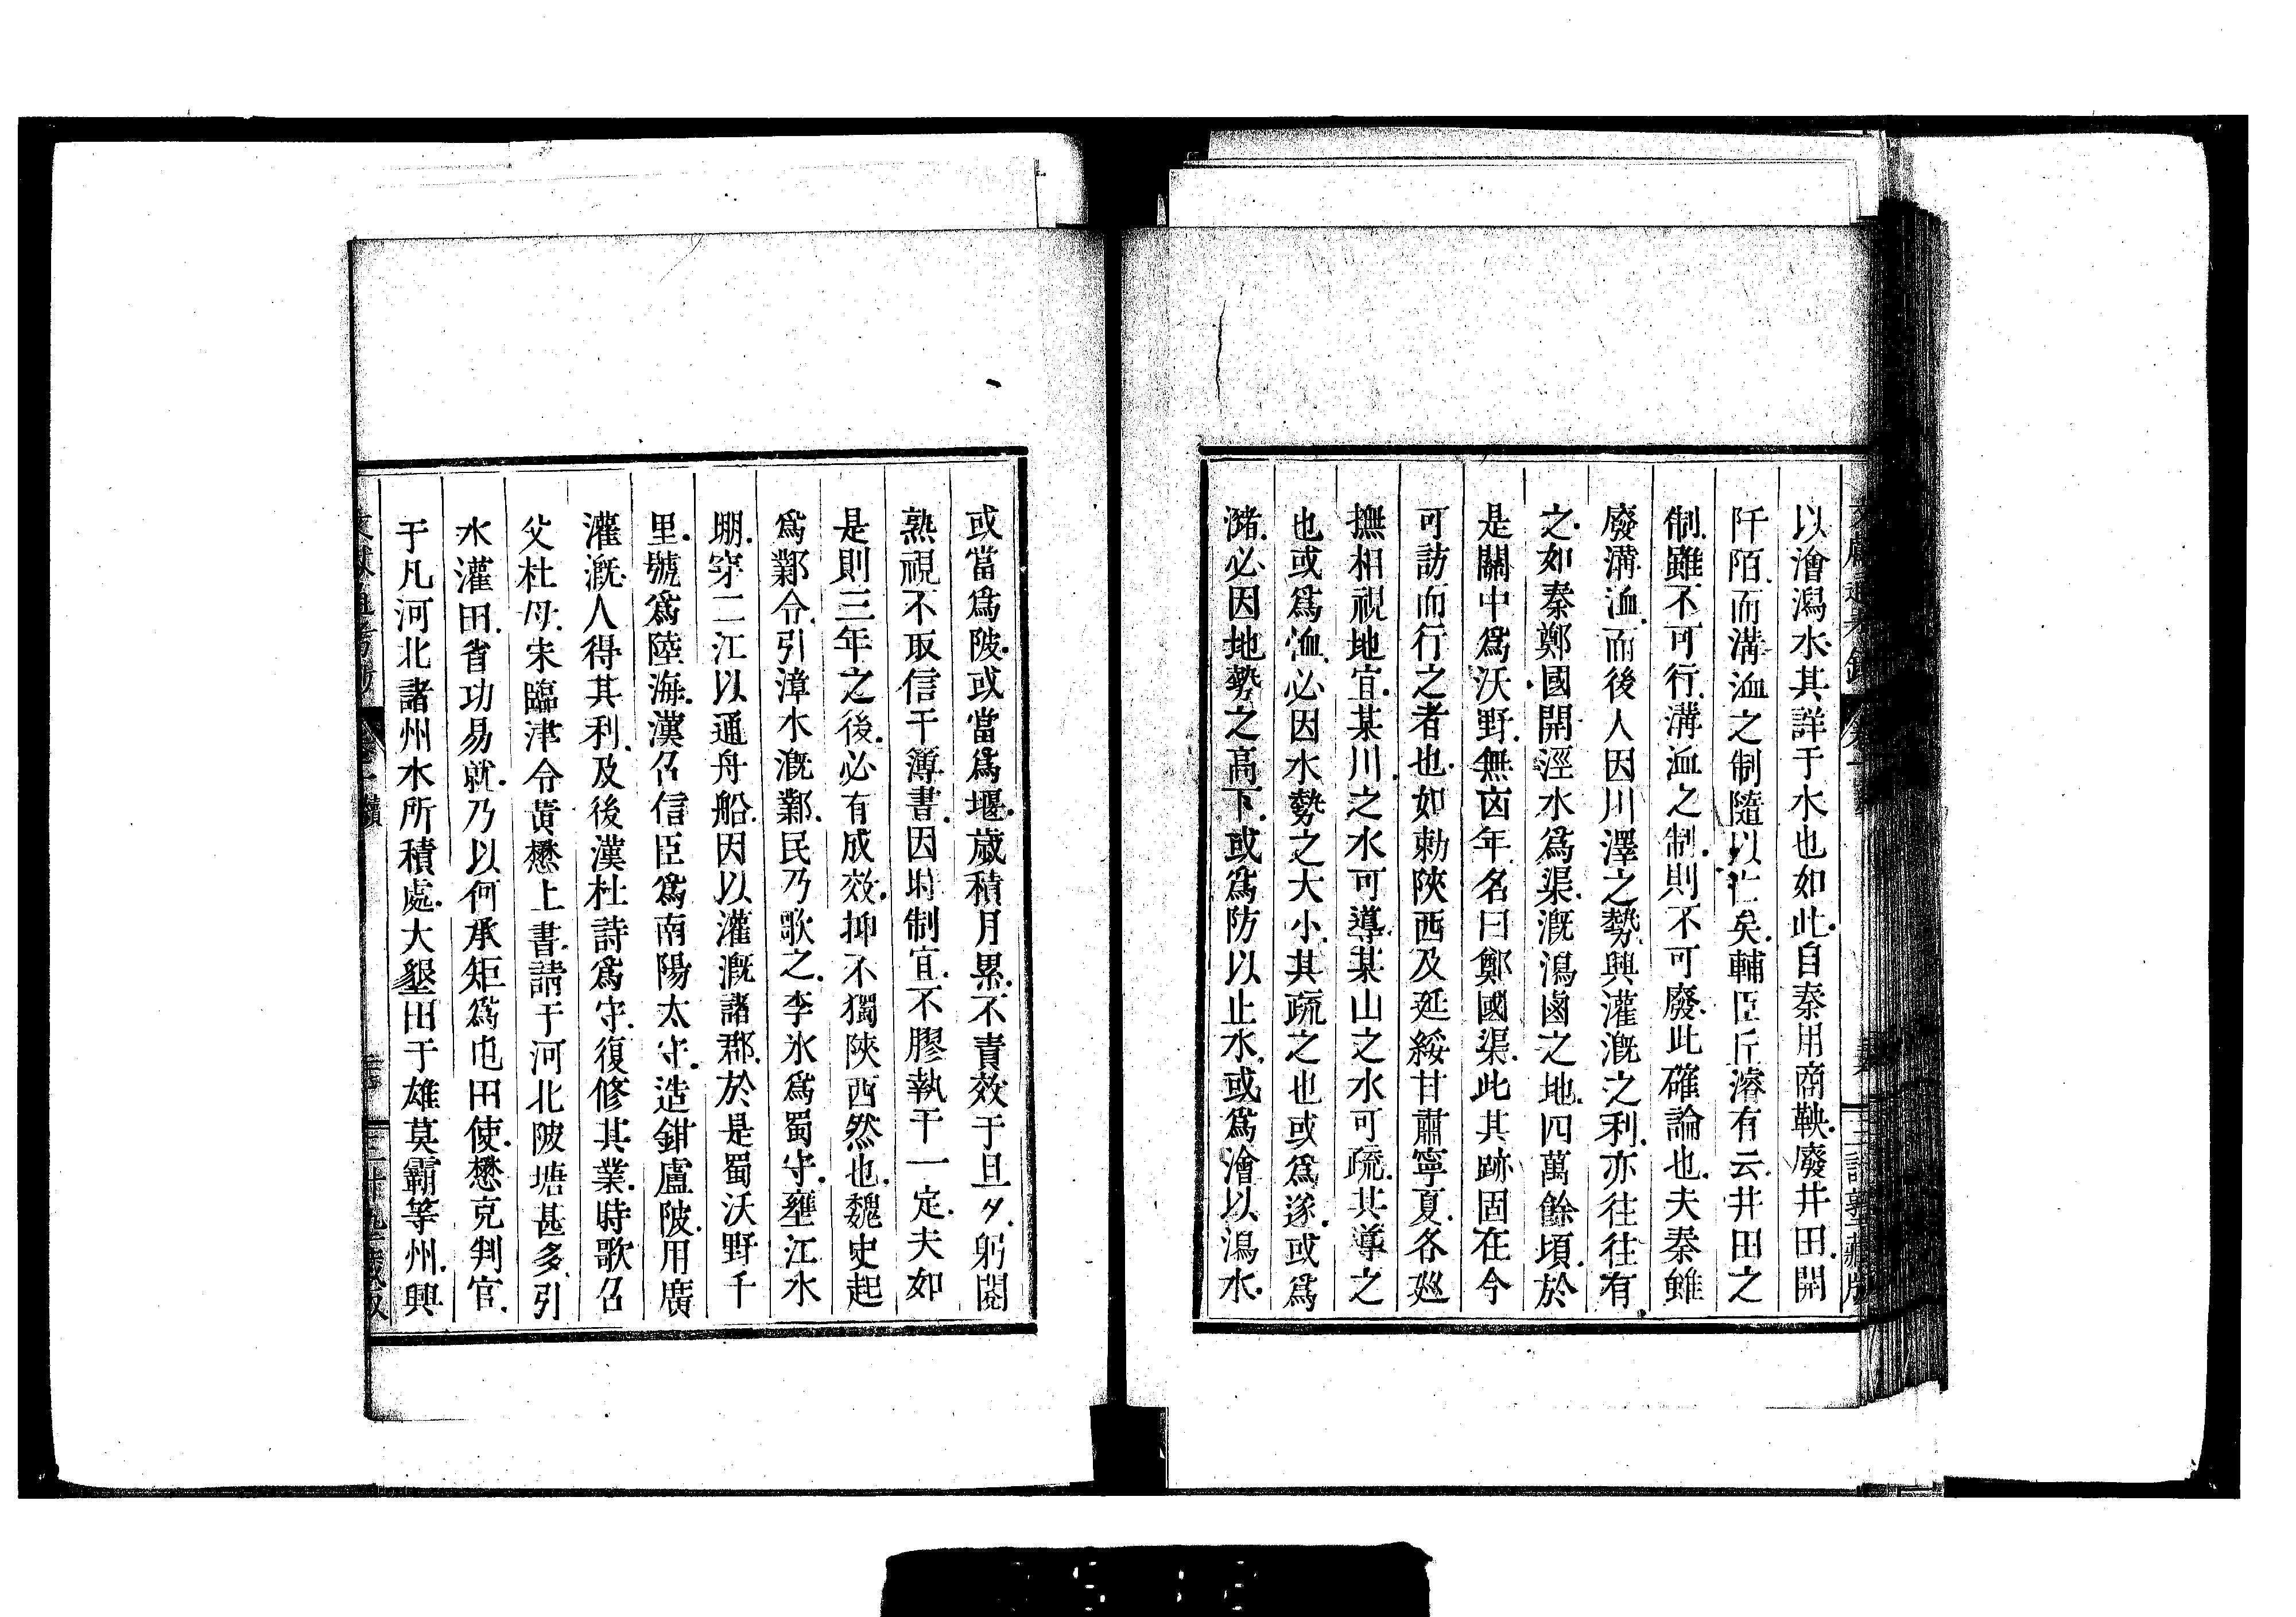 以澮瀉水其詳于水也如此自秦用商鞅廢井田開
阡陌而溝洫之制隨以亡矣輔臣丘濬有云井田之
制雖不可行溝洫之制則不可廢此確論也夫秦雖
廢溝洫而後人因川澤之勢興灌漑之利亦往往有
之如秦鄭國開涇水爲渠漑瀉鹵之地四萬餘頃於
是關中爲沃野無㐫年名曰鄭國渠此其跡固在今
可訪而行之者也如勅陝西及延綏甘肅寧夏各廵
撫相視地宜某川之水可導某山之水可疏其導之
也或爲洫必因水勢之大小其疏之也或爲遂或爲
瀦必因地勢之高下或爲防以止水或爲澮以瀉水
或當爲陂或當爲堰歲積月累不責效于旦夕躬閱
熟視不取信于簿書因時制宜不膠執于一定夫如
是則三年之後必有成效抑不獨陝西然也魏史起
爲鄴令引漳水漑鄴民乃歌之李氷爲蜀守壅江水
堋穿二江以通舟船因以灌漑諸郡於是蜀沃野千
里號爲陸海漢召信臣爲南陽太守造鉗盧陂用廣
灌漑人得其利及後漢杜詩爲守復修其業時歌召
父杜母宋臨津令黃懋上書請于河北陂塘甚多引
水灌田省功易就乃以何承矩爲屯田使懋克判官
于凡河北諸州水所積處大墾田于雄莫霸等州興